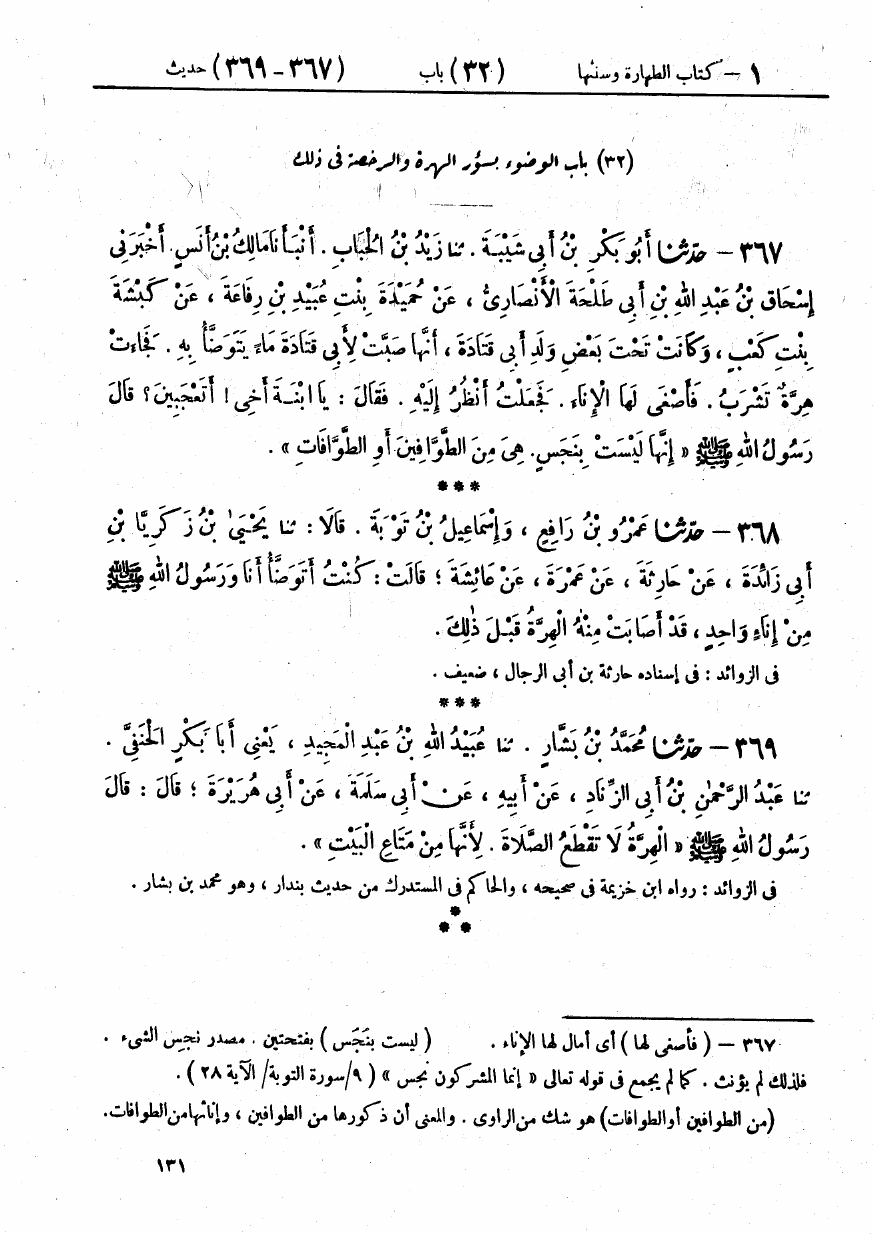 ١ – كتاب الطهارة وسننها (٣٢) باب (٣٦٧ – ٣٦٩) حديث
(٣٢) باب الوضوء بسؤر الهرة والرخصة فى ذلك
٣٦٧ – حَدَّثَنَا أَبُو بَكْرِ بْنُ أَبِى شَيْبَةَ . ثنا زَيْدُ بْنُ الْحُبَابِ . أَنْبَأَنَا مَالِكُ بْنُ أَنَسٍ . أَخْبَرَنِى
إِسْحَاقُ بْنُ عَبْدِ اللهِ بْنِ أَبِى طَلْحَةَ الْأَنْصَارِىُّ ، عَنْ حُمَيْدَةَ بِنْتِ عُبَيْدِ بْنِ رِفَاعَةَ ، عَنْ كَبْشَةَ
بِنْتِ كَعْبٍ ، وَكَانَتْ تَحْتَ بَعْضِ وَلَدِ أَبِى قَتَادَةَ ، أَنَّهَا صَبَّتْ لِأَبِى قَتَادَةَ مَاءً يَتَوَضَّأُ بِهِ . فَجَاءَتْ
هِرَّةٌ تَشْرَبُ . فَأَصْغَى لَهَا الْإِنَاءَ . فَجَعَلْتُ أَنْظُرُ إِلَيْهِ . فَقَالَ : يَا ابْنَةَ أَخِى ! أَتَعْجَبِينَ ؟ قَالَ
رَسُولُ اللهِ ﷺ « إِنَّهَا لَيْسَتْ بِنَجَسٍ. هِىَ مِنَ الطَّوَّافِينَ أَوِ الطَّوَّافَاتِ » .
***
٣٦٨ – حَدَّثَنَا عَمْرُو بْنُ رَافِعٍ ، وَإِسْمَاعِيلُ بْنُ تَوْبَةَ . قَالَا : ثنا يَحْيَىٰ بْنُ زَكَرِيَّا بْنِ
أَبِى زَائِدَةَ ، عَنْ حَارِثَةَ ، عَنْ عَمْرَةَ ، عَنْ عَائِشَةَ ؛ قَالَتْ : كُنْتُ أَتَوَضَّأُ أَنَا وَرَسُولُ اللهِ ﷺ
مِنْ إِنَاءٍ وَاحِدٍ ، قَدْ أَصَابَتْ مِنْهُ الْهِرَّةُ قَبْلَ ذٰلِكَ .
فى الزوائد : فى إسناده حارثة بن أبى الرجال ، ضعيف .
***
٣٦٩ – حَدَّثَنَا مُحَمَّدُ بْنُ بَشَّارٍ . ثنا عُبَيْدُ اللهِ بْنُ عَبْدِ الْمَجِيدِ ، يَعْنِى أَبَا بَكْرٍ الْحَنَفِىَّ .
ثنا عَبْدُ الرَّحْمٰنِ بْنُ أَبِى الزِّنَادِ ، عَنْ أَبِيهِ ، عَنْ أَبِى سَلَمَةَ ، عَنْ أَبِى هُرَيْرَةَ ؛ قَالَ : قَالَ
رَسُولُ اللهِ ﷺ « الْهِرَّةُ لَا تَقْطَعُ الصَّلَاةَ . لِأَنَّهَا مِنْ مَتَاعِ الْبَيْتِ » .
فى الزوائد : رواه ابن خزيمة فى صحيحه ، والحاكم فى المستدرك من حديث بندار ، وهو محمد بن بشار .
***
٣٦٧ – ( فأصغى لها ) أى أمال لها الإناء . ( ليست بنَجَس ) بفتحتين . مصدر نجِس الشىء .
فلذلك لم يؤنث . كما لم يجمع فى قوله تعالى « إنما المشركون نجس » ( ٩/سورة التوبة/ الآية ٢٨ ) .
(من الطوافين أو الطوافات) هو شك من الراوى . والمعنى أن ذكورها من الطوافين ، وإناثها من الطوافات.
١٣١